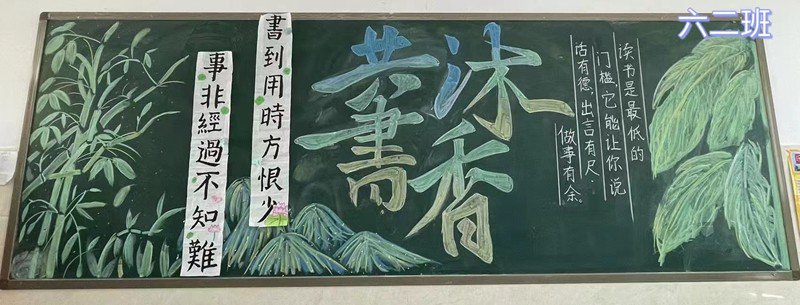 六二班
書到用時方恨少
事非經過不知難
共沐
書香
读书是最低的
门槛,它能让你说
话有德,出言有尺,
做事有余。